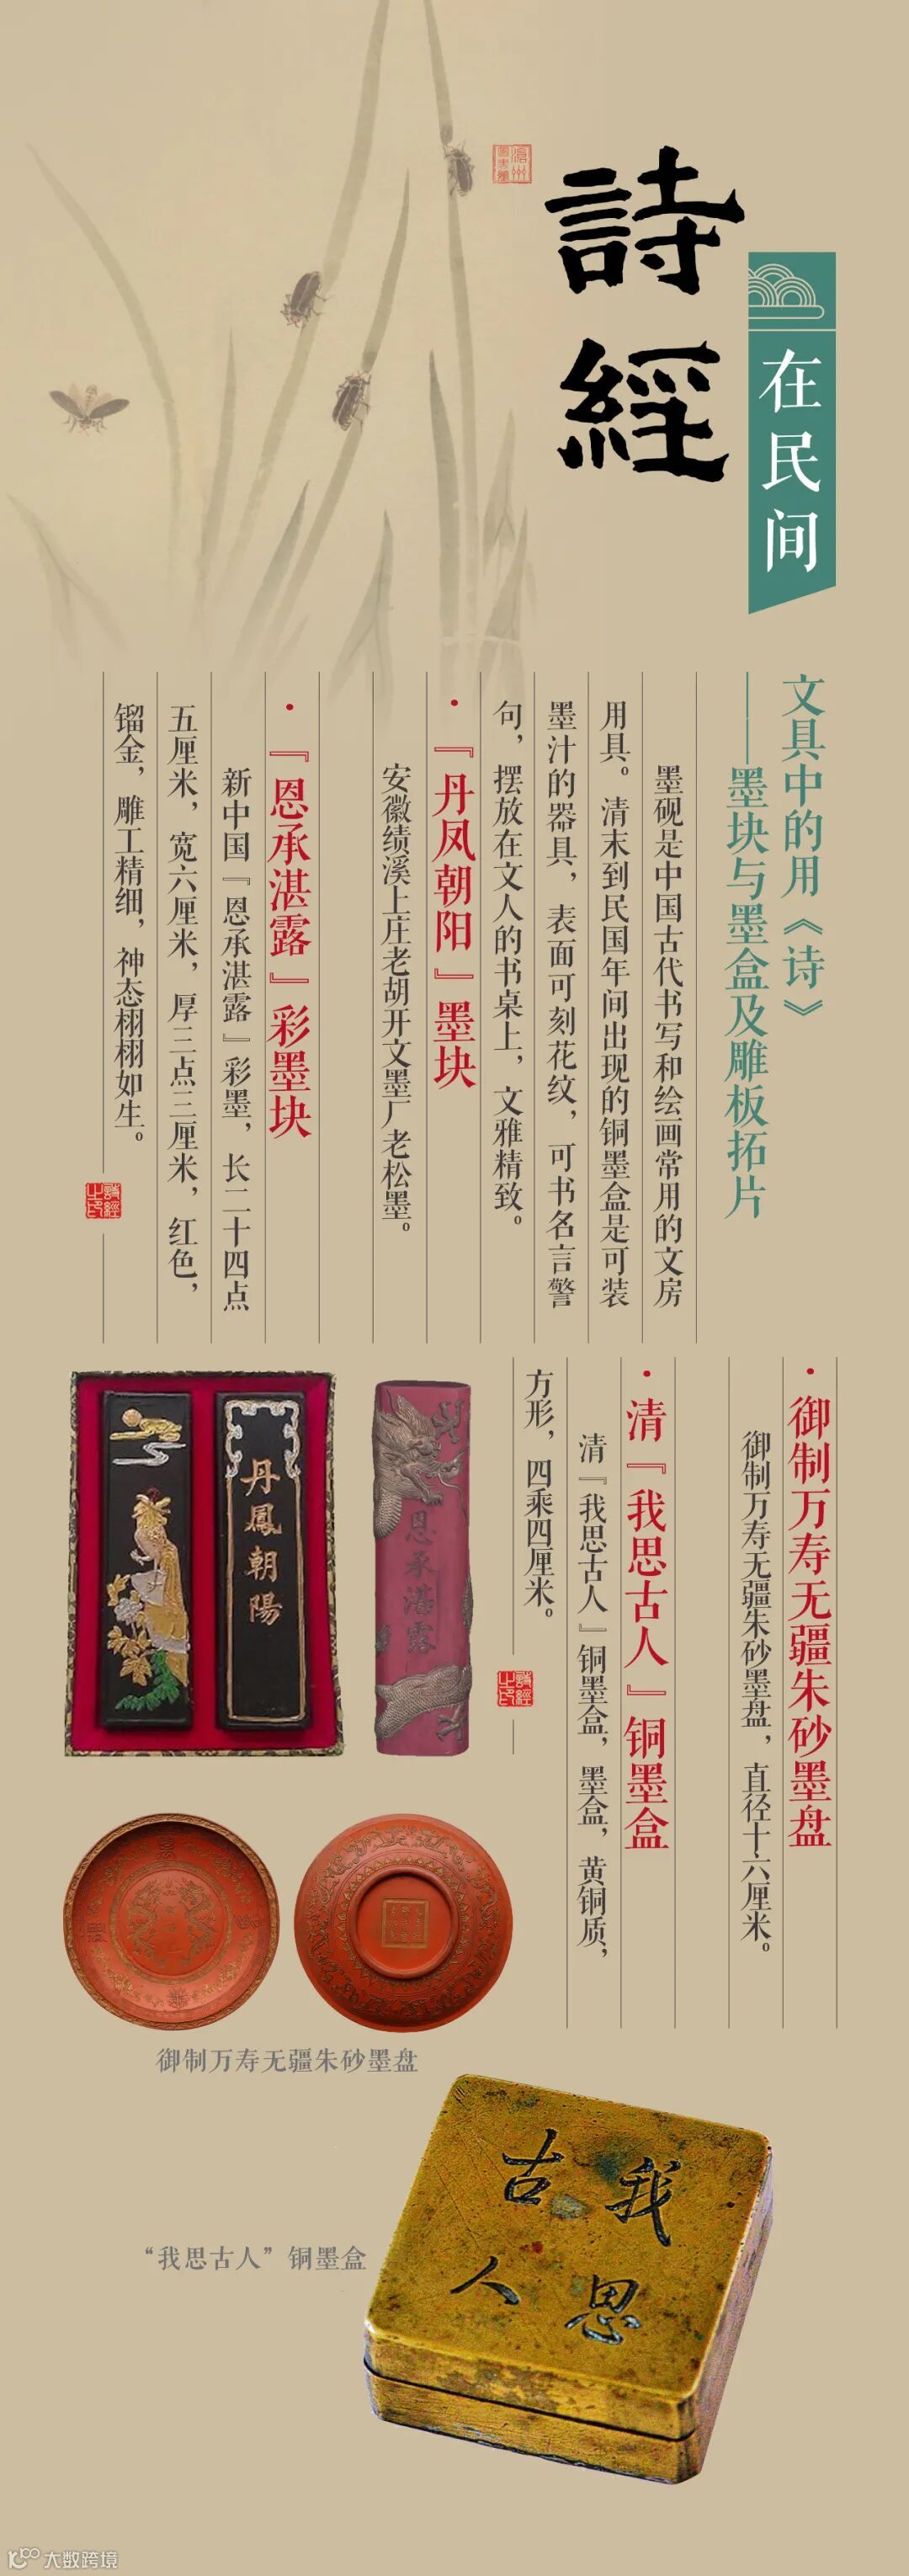 滄州
圖書館
詩經
在民间
文具中的用《诗》
——墨块与墨盒及雕板拓片
墨砚是中国古代书写和绘画常用的文房
用具。清末到民国年间出现的铜墨盒是可装
墨汁的器具，表面可刻花纹，可书名言警
句，摆放在文人的书桌上，文雅精致。
·『丹凤朝阳』墨块
安徽绩溪上庄老胡开文墨厂老松墨。
·『恩承湛露』彩墨块
新中国『恩承湛露』彩墨，长二十四点
五厘米，宽六厘米，厚三点三厘米，红色，
镏金，雕工精细，神态栩栩如生。
詩經
之印
·御制万寿无疆朱砂墨盘
御制万寿无疆朱砂墨盘，直径十六厘米。
·清『我思古人』铜墨盒
清『我思古人』铜墨盒，墨盒，黄铜质，
方形，四乘四厘米。
詩經
之印
恩承湛露
丹鳳朝陽
御制万寿无疆朱砂墨盘
我思
古人
“我思古人”铜墨盒
大数跨境